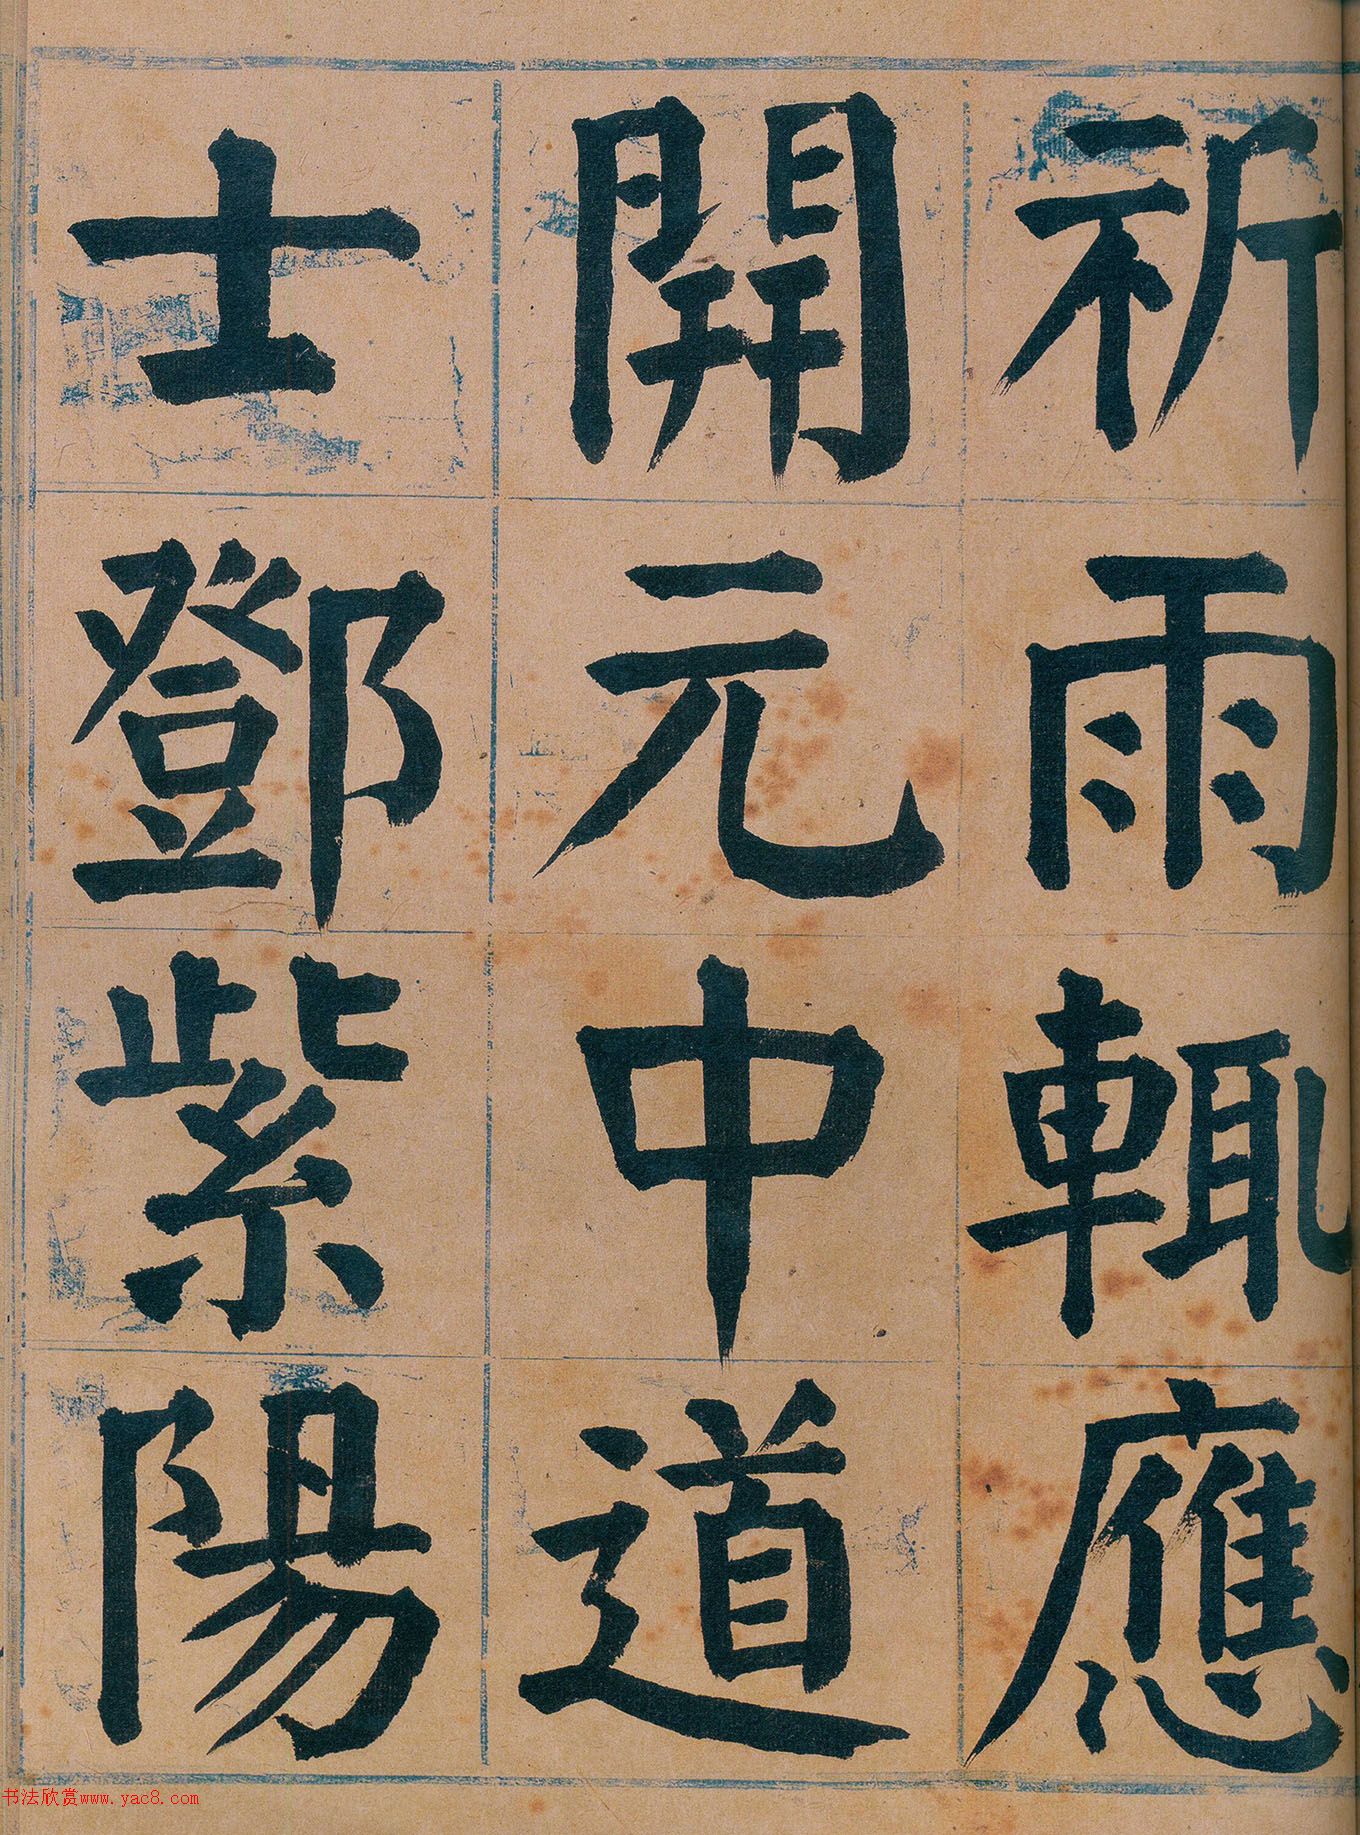 祈雨輒應
開元中道
士鄧紫陽
书法欣赏www.yac8.com